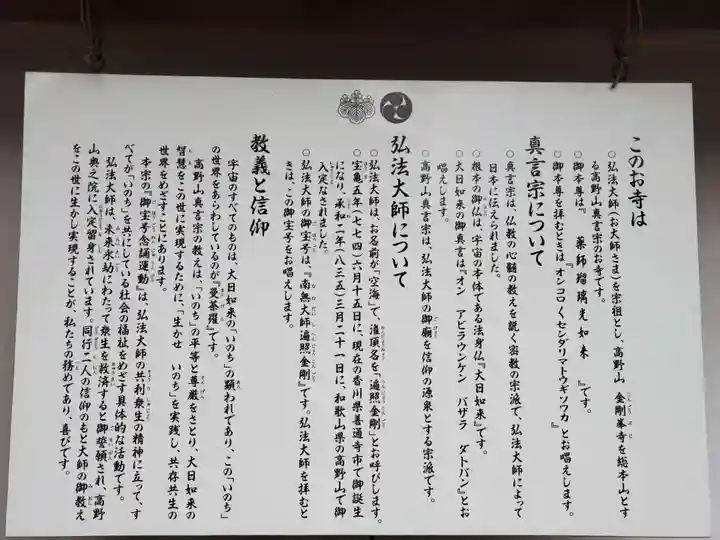 このお寺は
○弘法大師(お大師さま)を宗祖とし、高野山 金剛峯寺を総本山とす
る高野山真言宗のお寺です。
○御本尊は『 薬師瑠璃光如来 』です。
○御本尊を拝むときは『オンコロくセンダリマトウギソワカ』とお唱えします。
真言宗について
○真言宗は、仏教の心髄の教えを説く密教の宗派で、弘法大師によって
日本に伝えられました。
○根本の御仏は、宇宙の本体である法身仏『大日如来』です。
○大日如来の御真言は『オン アビラウンケン バザラ ダトバン』とお
唱えします。
○高野山真言宗は、弘法大師の御廟を信仰の源泉とする宗派です。
弘法大師について
○弘法大師は、お名前が「空海」で、潅頂名を「遍照金剛」とお呼びします。
○宝亀五年(七七四)六月十五日に、現在の香川県善通寺市で御誕生
になり、承和二年(八三五)三月二十一日に、和歌山県の高野山で御
入定なされました。
○弘法大師の御宝号は『南無大師遍照金剛』です。弘法大師を拝むと
きは、この御宝号をお唱えします。
教義と信仰
宇宙のすべてのものは、大日如来の「いのち」の顕われであり、この「いのち」
の世界をあらわしているのが『曼荼羅』です。
高野山真言宗の教えは、「いのち」の平等と尊厳をさとり、大日如来の
智慧をこの世に実現するために、「生かせ いのち」を実践し、共存共生の
世界をめざすことにあります。
本宗の『御宝号念誦運動』は、弘法大師の共利衆生の精神に立って、す
べてが「いのち」を共にしている社会の福祉をめざす具体的な活動です。
弘法大師は、未来永劫にわたって衆生を救済すると御誓願され、高野
山奥之院に入定留身されています。同行二人の信仰のもと大師の御教え
をこの世に生かし実現することが、私たちの務めであり、喜びです。